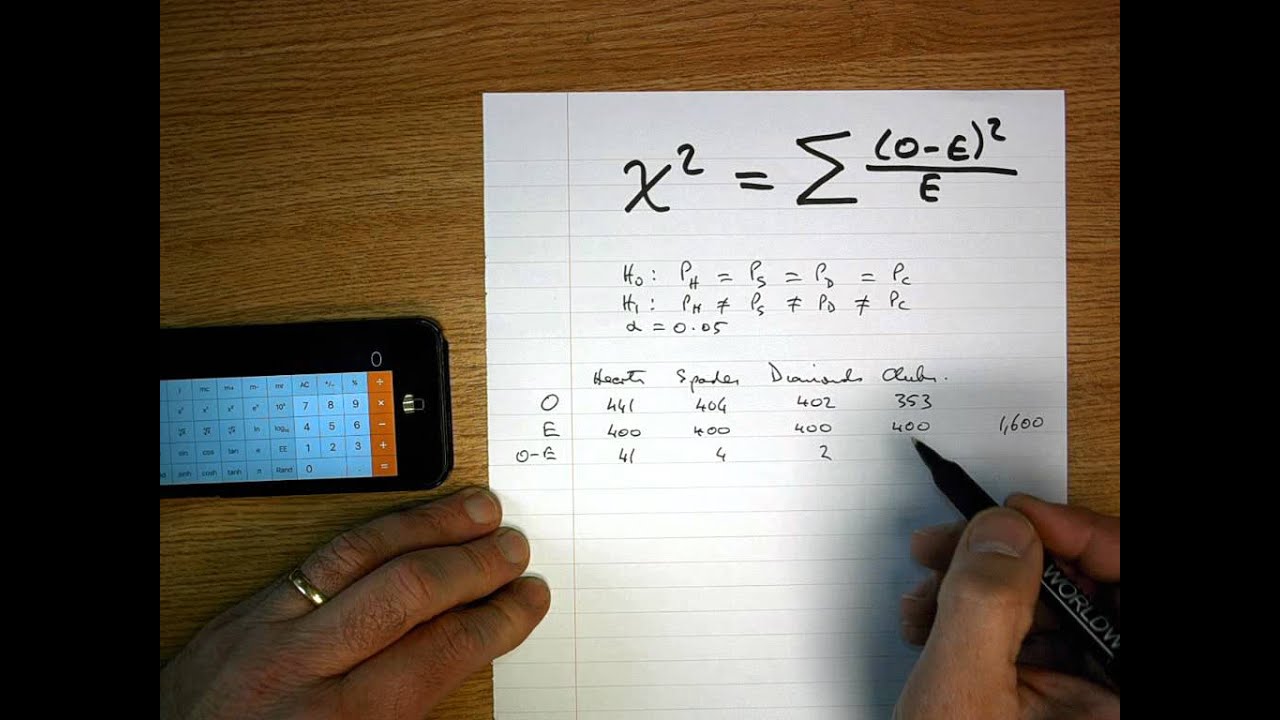 χ² = Σ (O-E)² / E
H₀: P_H = P_S = P_D = P_C
H₁: P_H ≠ P_S ≠ P_D ≠ P_C
α = 0.05
Hearts Spades Diamonds Clubs.
O 441 404 402 353
E 400 400 400 400 1,600
O-E 41 4 2
0
( mc m+ m- mr AC +/- % ÷
7 8 9 ×
4 5 6 −
sin cos tan EE 1 2 3 +
sinh cosh tanh π Rand 0 . =
WORLDW